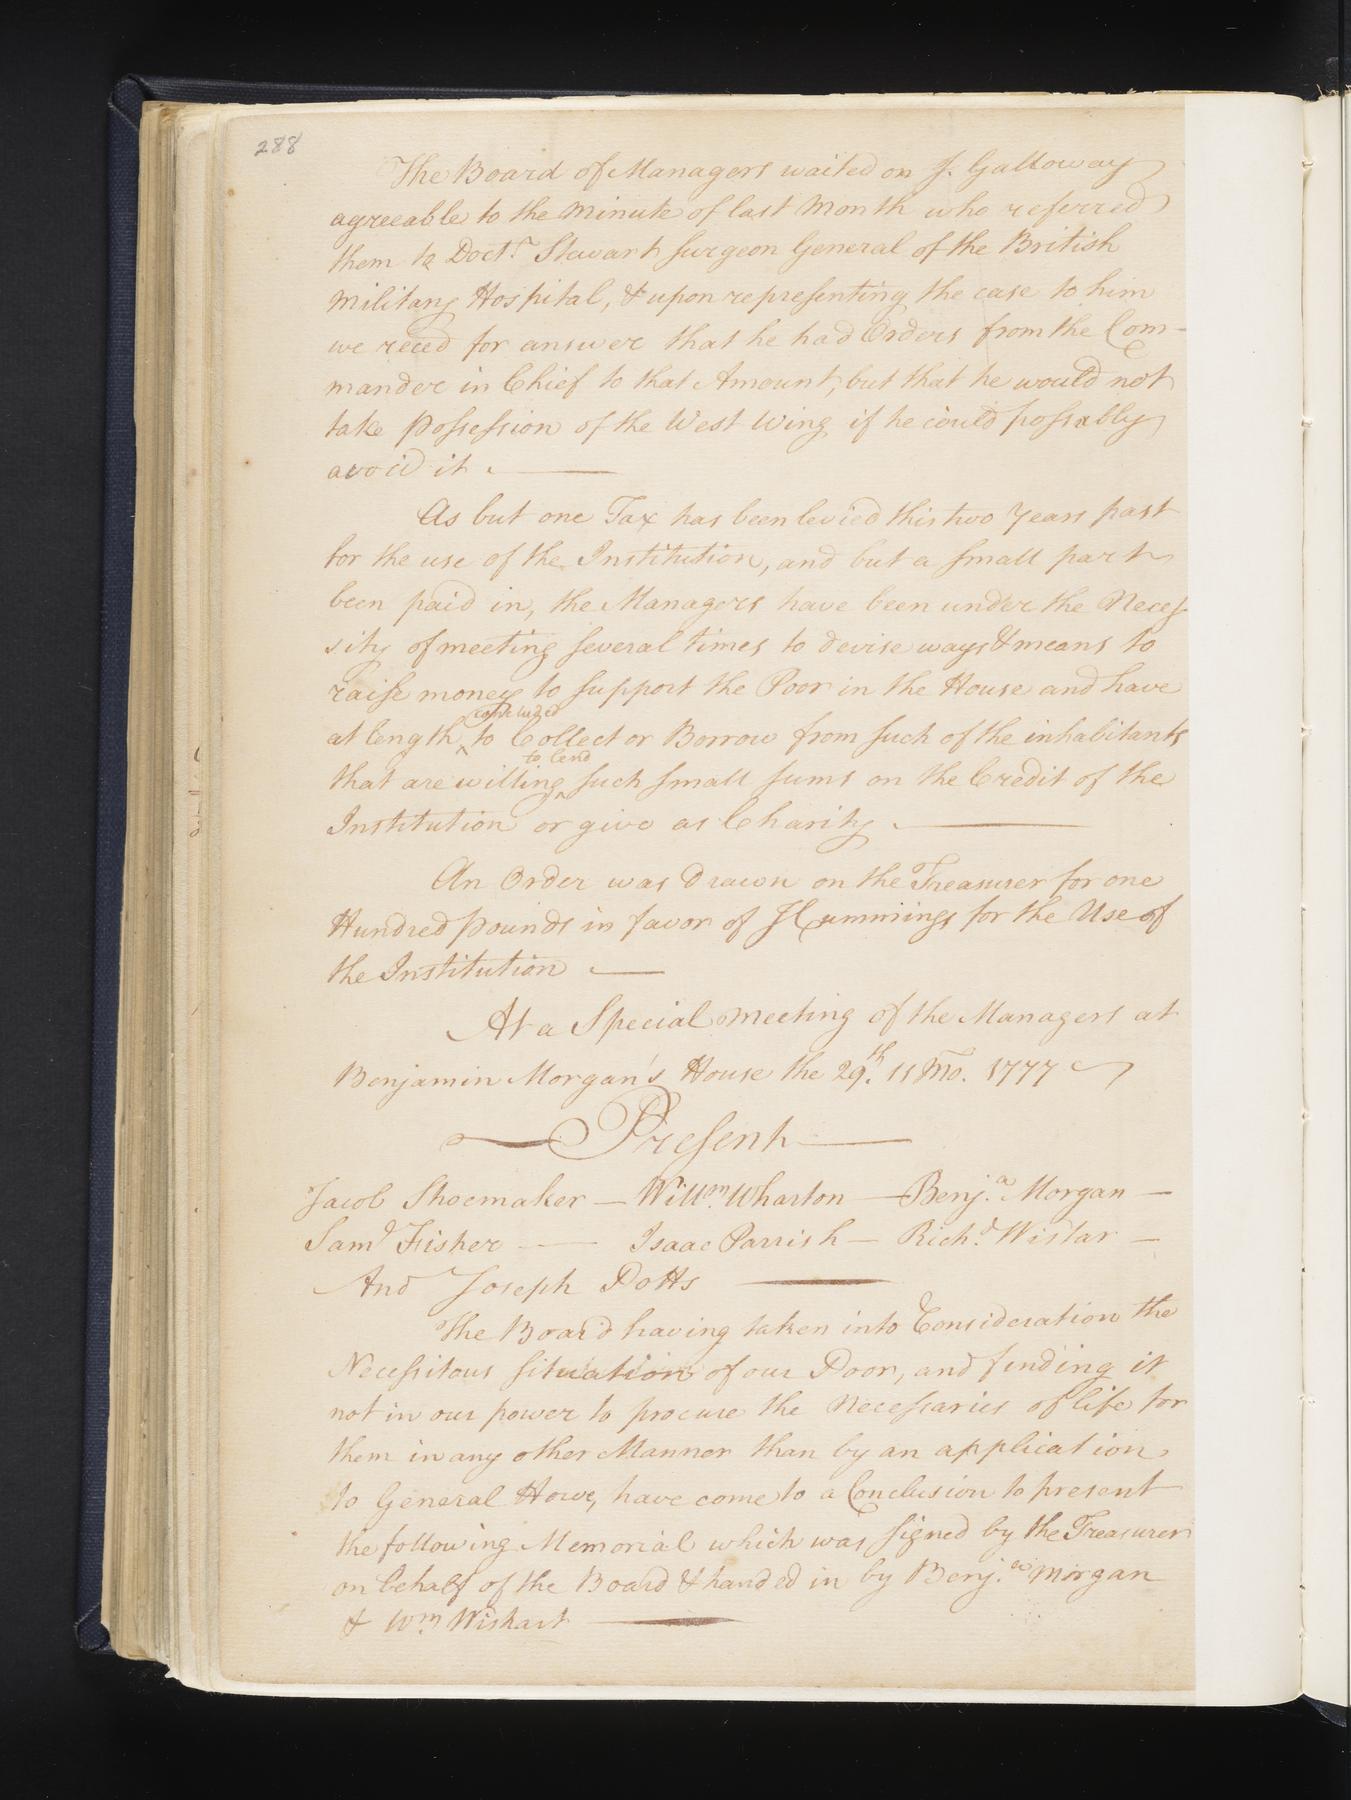 288
The Board of Managers waited on J. Galloway
agreeable to the Minute of last Month who referred
them to Doctr. Stewart Surgeon General of the British
Military Hospital, & upon representing the case to him
we reced for answer that he had Orders from the Com-
mander in Chief to that Amount, but that he would not
take Possession of the West Wing if he could possably
avoid it.
As but one Tax has been levied this two Years past
for the use of the Institution, and but a small part
been paid in, the Managers have been under the Neces
sity of meeting several times to devise ways & means to
raise money to support the Poor in the House and have
concluded
at length ^ to Collect or Borrow from such of the inhabitants
to lend
that are willing ^ such small sums on the Credit of the
Institution or give as Charity.
An Order was Drawn on the Treasurer for one
Hundred Pounds in favor of J Cummings for the Use of
the Institution
At a Special meeting of the Managers at
Benjamin Morgan's House the 29th. 11 Mo. 1777
Present
Jacob Shoemaker — Willm. Wharton — Benja. Morgan —
Saml Fisher — Isaac Parrish — Richd. Wistar —
And Joseph Potts
The Board having taken into Consideration the
Necessitous situation of our Poor, and finding it
not in our power to procure the Necessaries of life for
them in any other Manner than by an application
to General Howe, have come to a Conclusion to present
the following Memorial which was signed by the Treasurer
on behalf of the Board & handed in by Benja. Morgan
& Wm Wishart